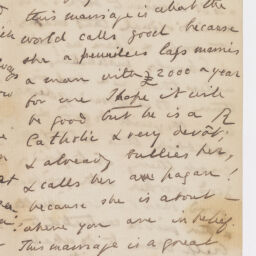 this marriage is what the
world calls good because
she a penniless lass marries
a man with £2000 a year
for me I hope it will
be good but he is a R
Catholic & very devot
& already bullies her,
& calls her a pagan!
because she is about
where you are in belief.
This marriage is a great